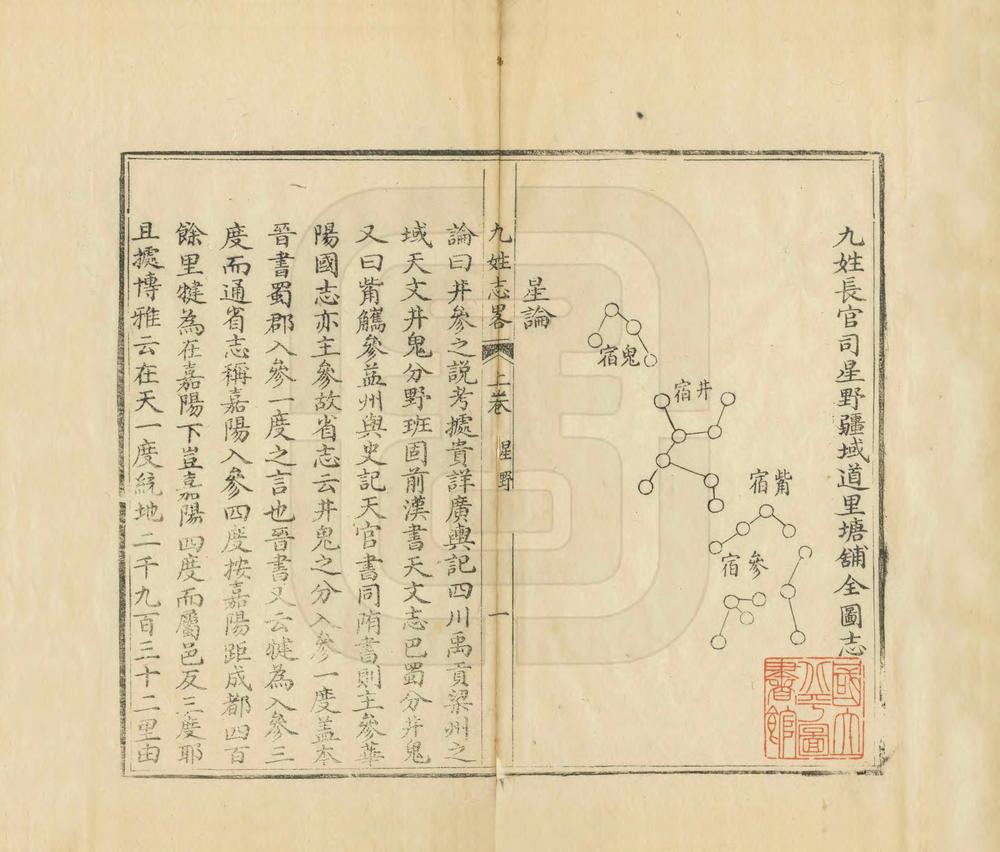 九姓長官司星野疆域道里塘舖全圖志
宿鬼
宿井
宿觜
宿參
國立北平圖書館
星論
九姓志畧 上卷 星野 一
論曰井參之説考攄貴詳廣輿記四川禹貢梁州之
域天文井鬼分野班固前漢書天文志巴蜀分井鬼
又曰觜觿參益州與史記天官書同隋書則主參華
陽國志亦主參故省志云井鬼之分入參一度盖本
晉書蜀郡入參一度之言也晉書又云犍為入參三
度而通省志稱嘉陽入參四度按嘉陽距成都四百
餘里犍為在嘉陽下豈嘉陽四度而屬邑反三度耶
且攄博雅云在天一度統地二千九百三十二里由